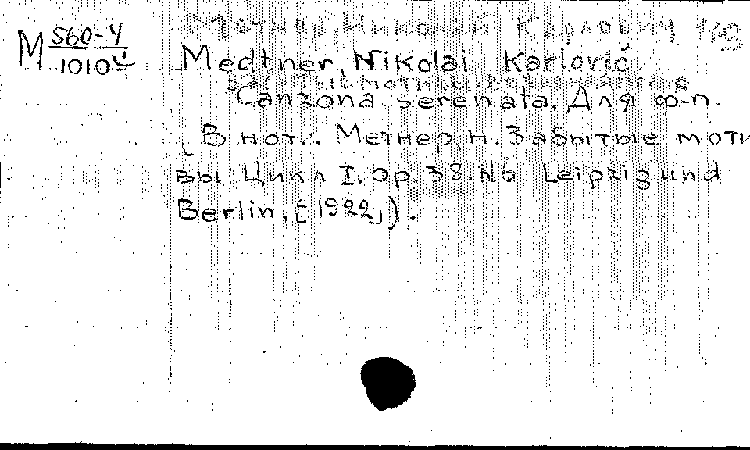 Метнер, Николай Карлович
M 560-4
1010 4
Medtner, Nikolai Karlovič
Canzona serenata. Для ф-п.
(В нот.: Метнер Н. Забытые моти
вы Цикл I. Op. 38. №6 Leipzig und
Berlin, [1922,]).